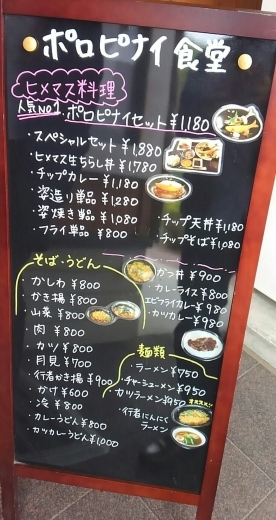 ポロピナイ食堂
ヒメマス料理
人気NO1 ポロピナイセット ¥1,180
・スペシャルセット ¥1,880
・ヒメマス生ちらし丼 ¥1,780
・チップカレー ¥1,180
・姿造り単品 ¥1,280
・姿焼き単品 ¥1,080
・フライ単品 ¥800
・チップ天丼 ¥1,180
・チップそば ¥1,080
そば・うどん
・かしわ ¥800
・かき揚 ¥800
・山菜 ¥800
・肉 ¥800
・カツ ¥800
・月見 ¥700
・行者かき揚 ¥900
・かけ ¥600
・冷 ¥800
・カレーうどん ¥800
・カツカレーうどん ¥1,000
・カツ丼 ¥900
・カレーライス ¥800
・エビフライカレー ¥980
・カツカレー ¥980
麺類
・ラーメン ¥750
・チャーシューメン ¥950
・カツラーメン ¥950
オススメ
・行者にんにく
ラーメン